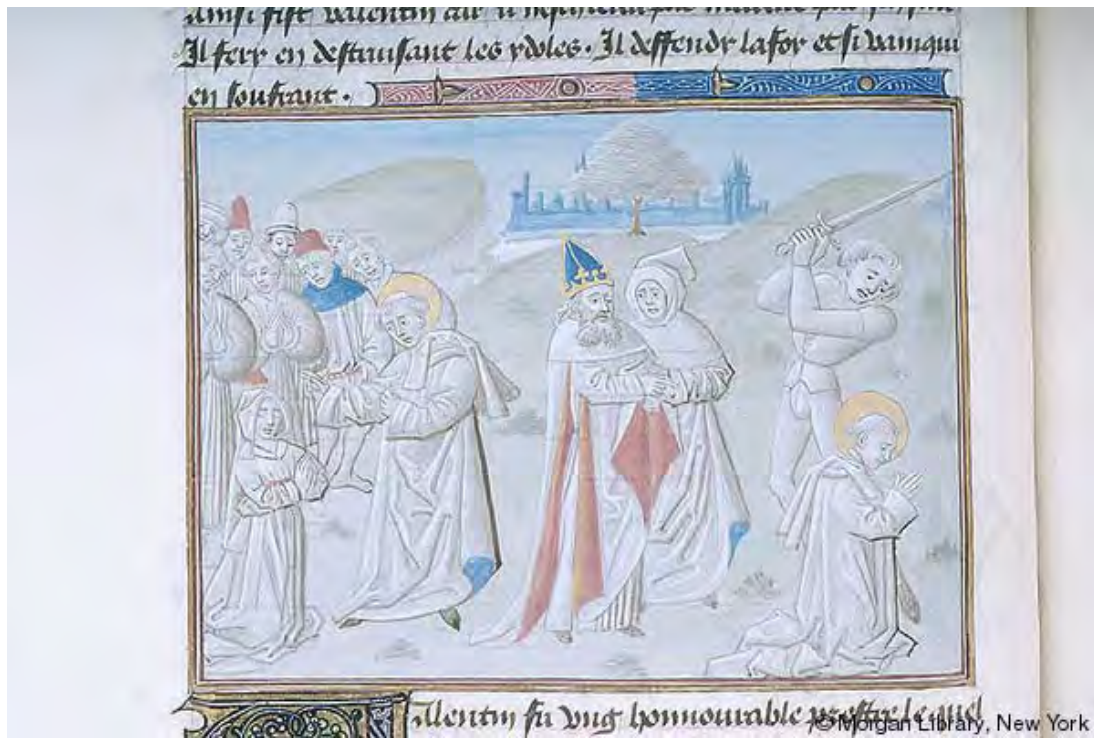 ainsi fist valentin car il
Il fery en destruisant les ydoles. Il deffendy la foy et si vainqui
en souffrant.
Valentin fu vng honnourable prestre le quel
© Morgan Library, New York